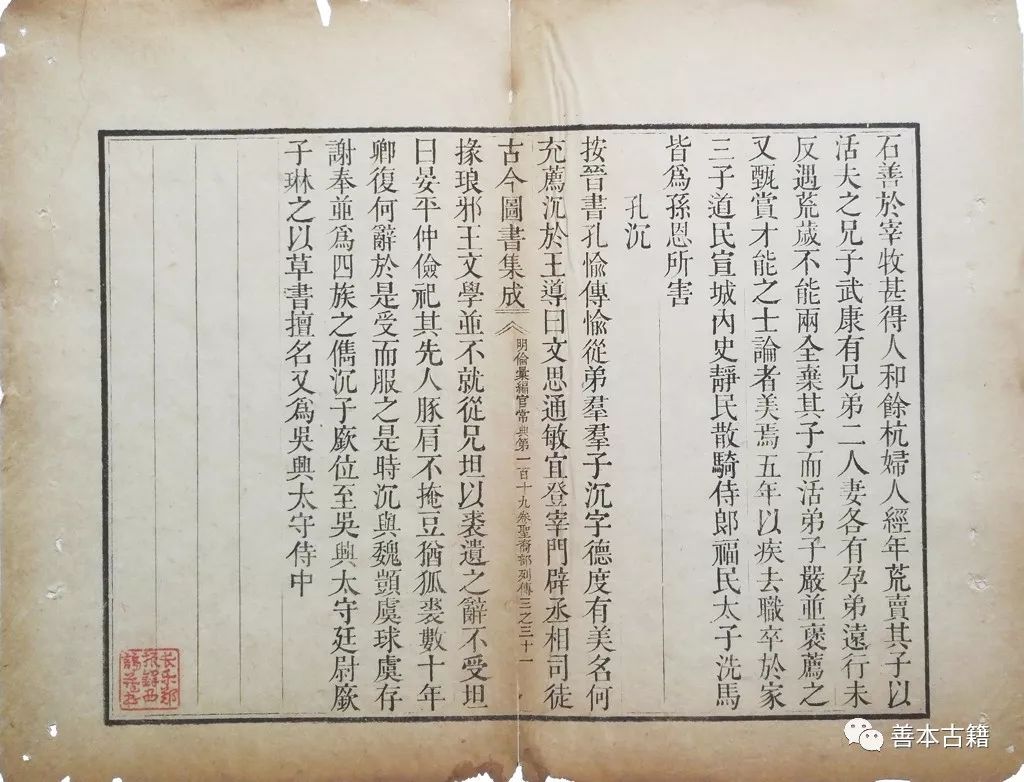 石善於宰牧甚得人和餘杭婦人經年荒賣其子以
活夫之兄子武康有兄弟二人妻各有孕弟遠行未
反遇荒歲不能兩全棄其子而活弟子嚴並褒薦之
又甄賞才能之士論者美焉五年以疾去職卒於家
三子道民宣城內史靜民散騎侍郎福民太子洗馬
皆爲孫恩所害
孔沉
按晉書孔愉傳愉從弟羣羣子沉字德度有美名何
充薦沉於王導曰文思通敏宜登宰門辟丞相司徒
古今圖書集成
明倫彙編官常典第一百十九卷聖裔部列傳三之三十一
掾琅邪王文學並不就從兄坦以裘遺之辭不受坦
曰晏平仲儉祀其先人豚肩不掩豆猶狐裘數十年
卿復何辭於是受而服之是時沉與魏顗虞球虞存
謝奉並爲四族之儁沉子廞位至吳興太守廷尉廞
子琳之以草書擅名又爲吳興太守侍中
长乐郑
振鐸西
諦藏書
善本古籍